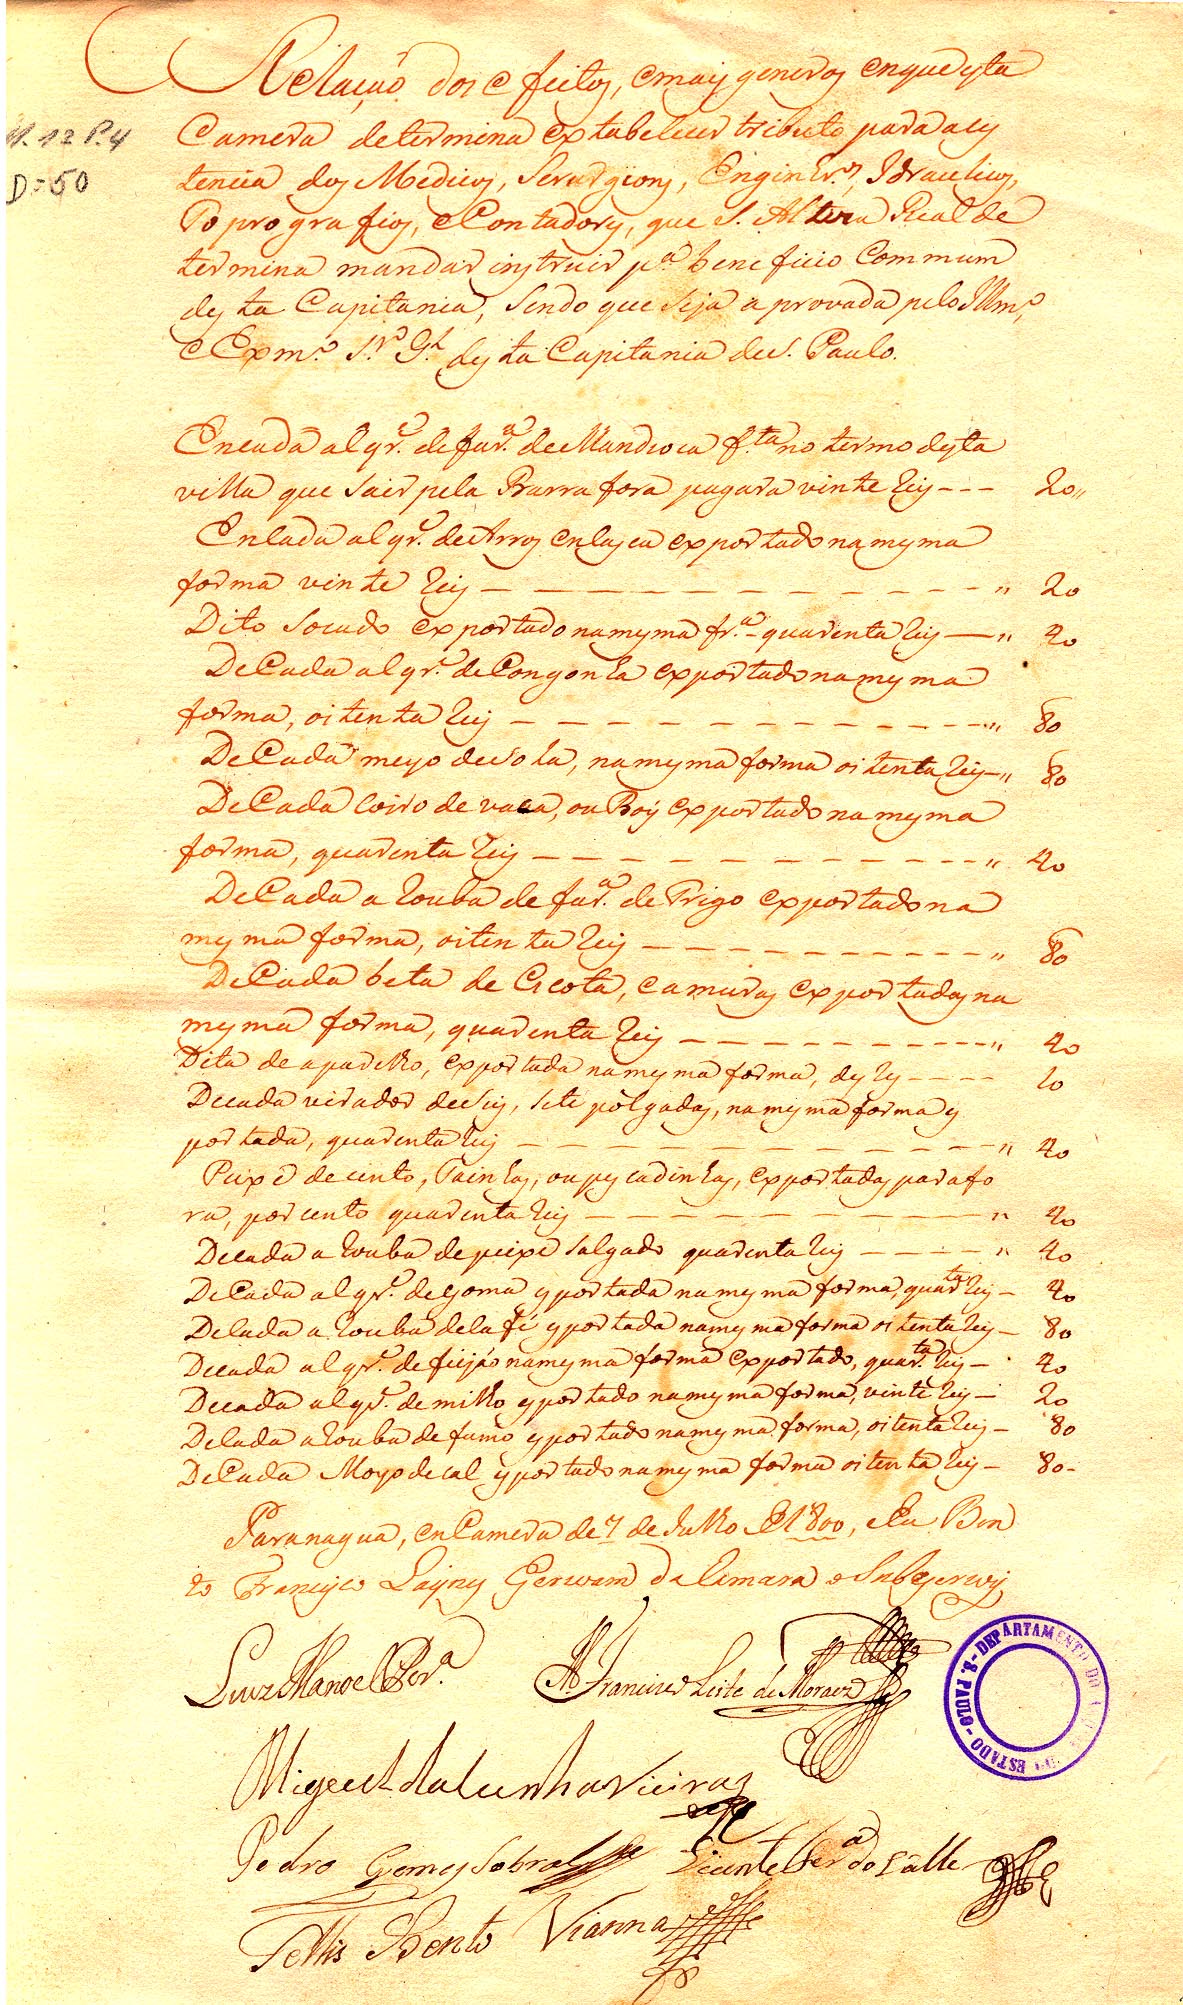 Relação dos effeitos, emais generos enquesta
Camera determina extabelicer tributo para acis
tencia dos Medicos, Serurgions, Enginhr.os, Idraulicos,
Topprografios, e Contadores, que S. Alteza Real de
termina mandar instruir p.a beneficio Commum
desta Capitania, sendo que seja aprovada pelo Illm.o
e Exm.o S.r G.l desta Capitania de S. Paulo.
Encada alqr.e de far.a de Mandioca f.ta no termo desta
villa que sair pela Barra fora pagara vinte reis --- 20"
Encada alqr.e de Arros encasca exportado namesma
forma vinte reis — " 20
Dito socado exportado namesma fr.a quarenta reis — " 40
DeCada alqr.e de Congonha exportado namesma
forma, oitenta reis — " 80
DeCada meyo desola, namesma forma oitenta reis — " 80
DeCada coiro de vaca, ou Boy exportado namesma
forma, quarenta reis — " 40
DeCada arouba de far.a de Trigo exportado na
mesma forma, oitenta reis — " 80
DeCada beta de Escota, eamuras exportadas na
mesma forma, quarenta reis — " 40
Dita de aparelho, exportada namesma forma, des reis ---- 10
Decada virador deseis, sete polgadas, namesma forma es
portada, quarenta reis — " 40
Peixe de cento, Tainhas, oupescadinhas, exportadas parafo
ra, por cento quarenta reis — " 40
Decada arouba de peixe salgado quarenta reis — " 40
DeCada alqr.e de goma esportada namesma forma, quar.ta reis — 40
Decada arouba decafé esportada namesma forma oitenta reis — 80
Decada alqr.e de feijão namesma forma exportado, quar.ta reis — 40
Decada alqr.e de milho esportado namesma forma, vinte reis — 20
Decada arouba de fumo esportado namesma forma, oitenta reis — 80
DeCada Moyo de cal esportado namesma forma oitenta reis — 80-
Paranagua, em Camera de 7 de Julho de 1800, e Eu Ben
to Francisco Escrivam da Camara o Sobescrevy
Luiz Manoel Per.a Francisco Leite de Moraes
Miguel da Cunha Vieira
Pedro Gomes Sobral Vicente Fer.a do Valle
Felis Bento Vianna
M. 12 P. 4
D = 50
DEPARTAMENTO DO ESTADO - S. PAULO -